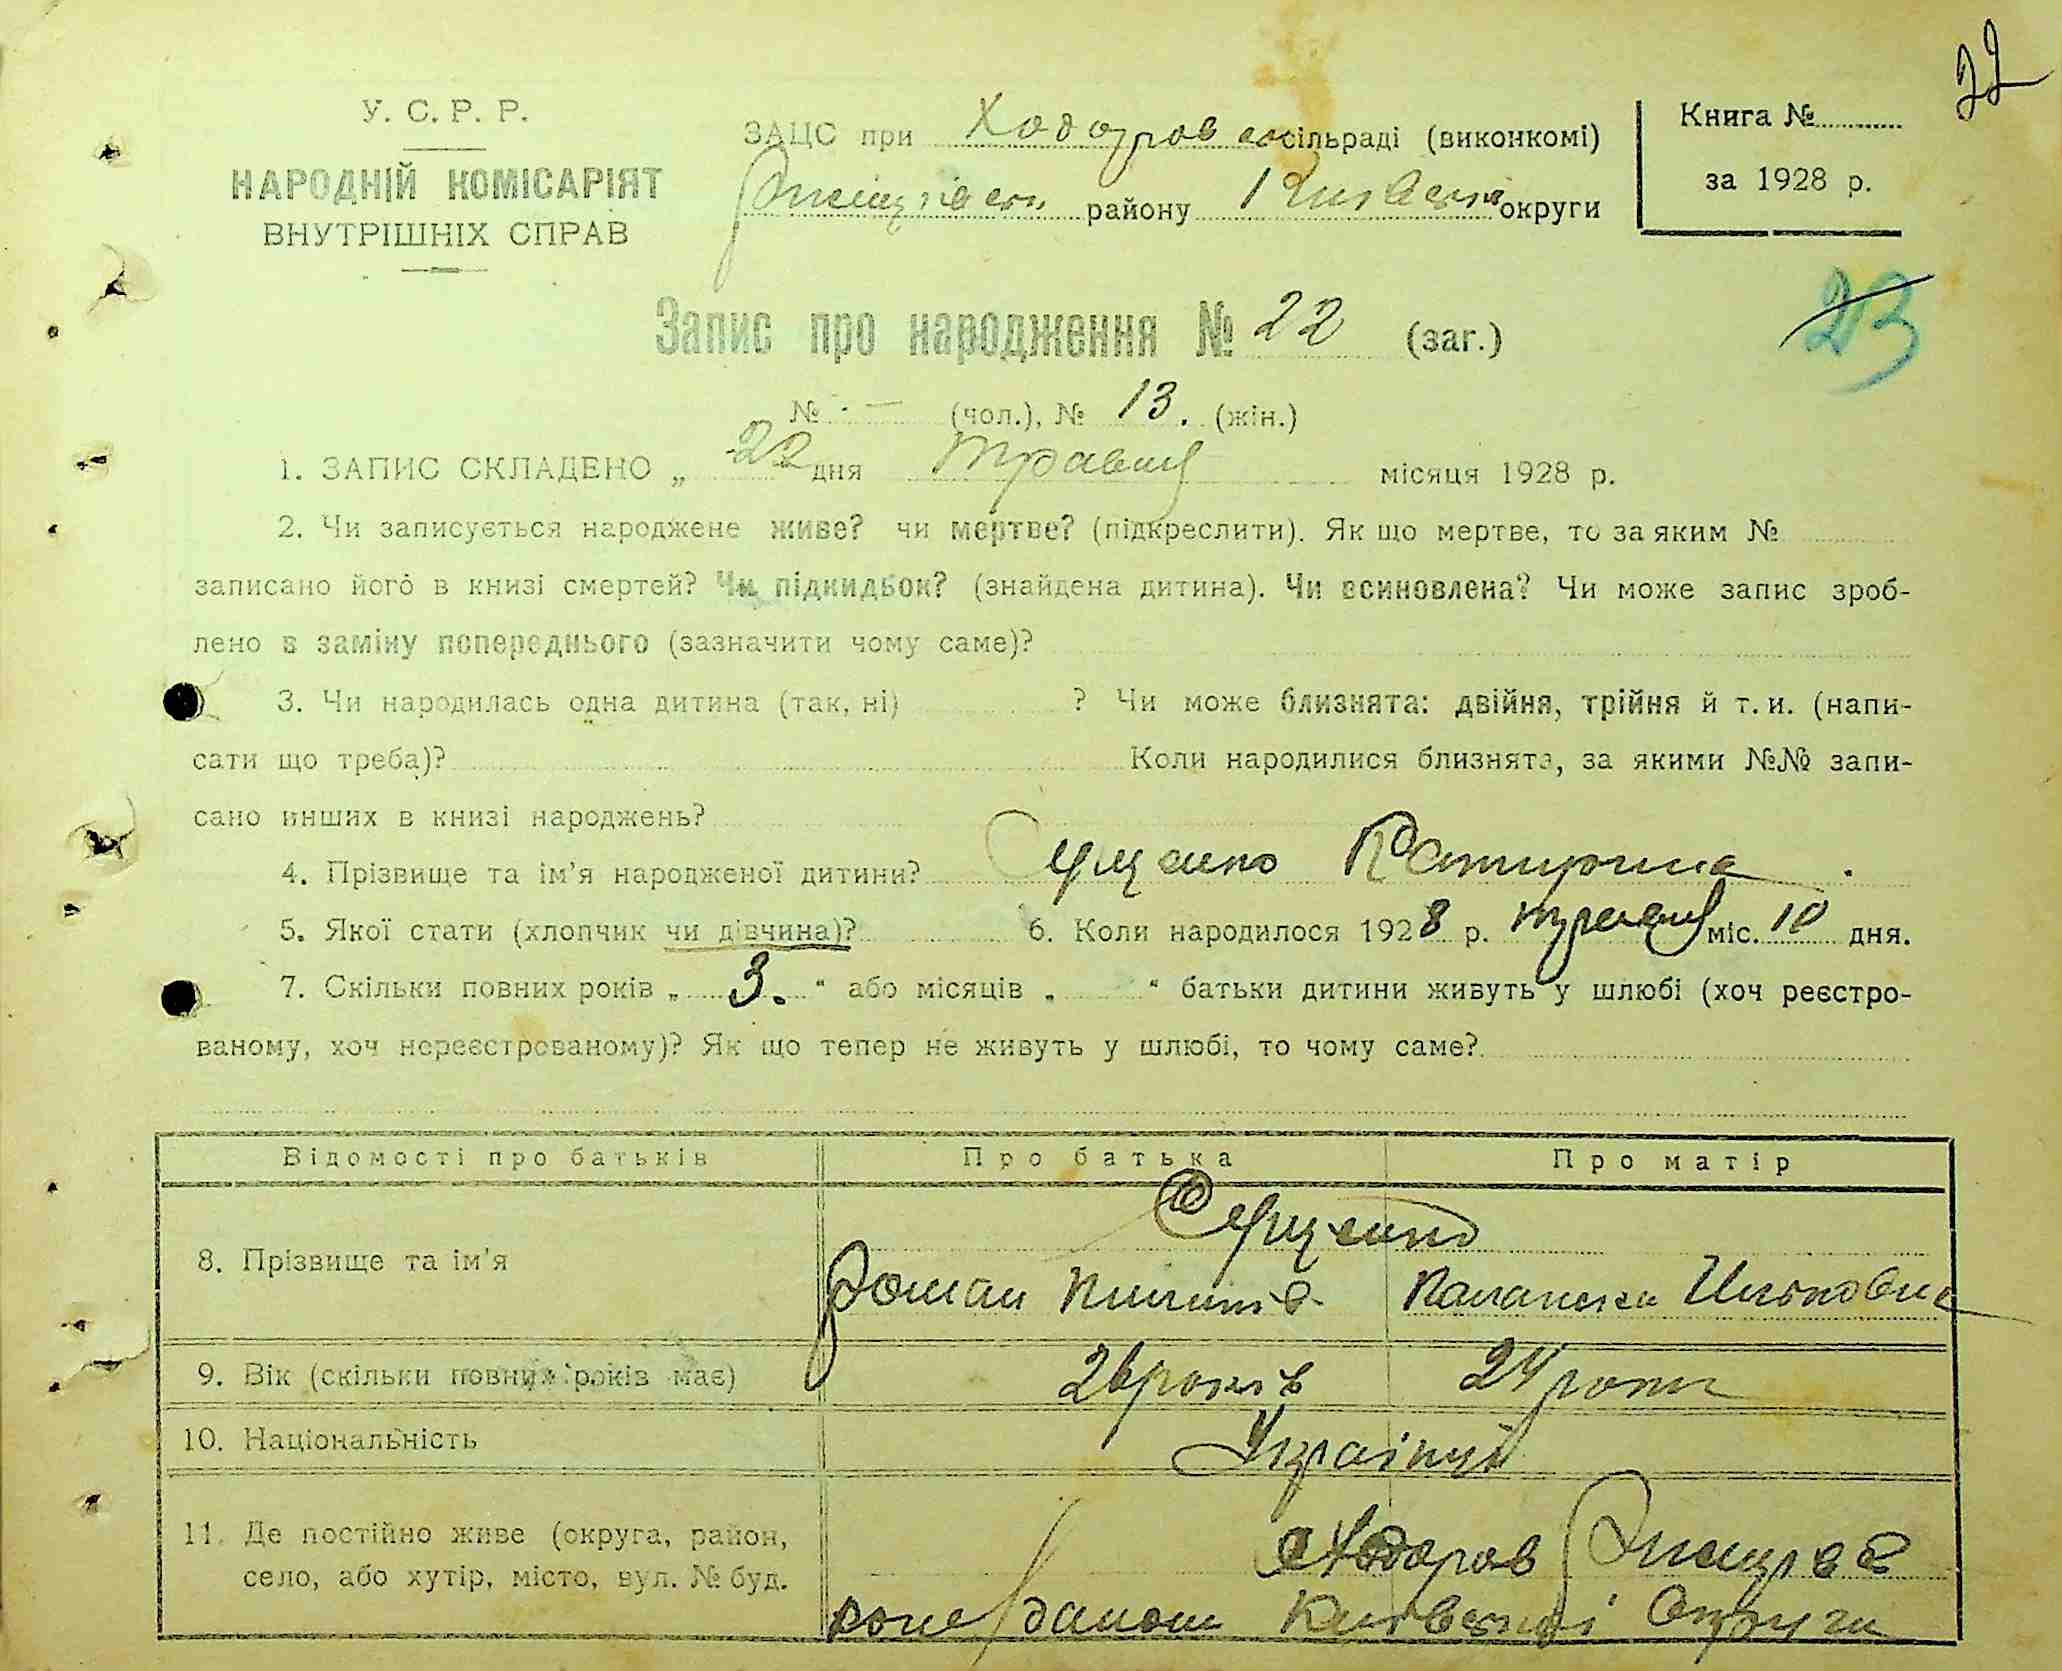 22
У. С. Р. Р.
НАРОДНІЙ КОМІСАРІЯТ
ВНУТРІШНІХ СПРАВ
ЗАЦС при Ходорів сільраді (виконкомі)
району Київськ округи
Книга №
за 1928 р.
23
Запис про народження № 22 (заг.)
№ - (чол.), № 13. (жін.)
1. ЗАПИС СКЛАДЕНО „ 22 дня травня місяця 1928 р.
2. Чи записується народжене живе? чи мертве? (підкреслити). Як що мертве, то за яким №
записано його в книзі смертей? Чи підкидьок? (знайдена дитина). Чи всиновлена? Чи може запис зроб-
лено в заміну попереднього (зазначити чому саме)?
3. Чи народилась одна дитина (так, ні) ? Чи може близнята: двійня, трійня й т. и. (напи-
сати що треба)? Коли народилися близнята, за якими №№ запи-
сано инших в книзі народжень?
4. Прізвище та ім'я народженої дитини? Катирина
5. Якої стати (хлопчик чи дівчина)? 6. Коли народилося 1928 р. травня міс. 10 дня.
7. Скільки повних років „ 3. “ або місяців „ “ батьки дитини живуть у шлюбі (хоч реєстро-
ваному, хоч нереєстрованому)? Як що тепер не живуть у шлюбі, то чому саме?
Відомості про батьків Про батька Про матір
8. Прізвище та ім'я
Роман Пилипів Паланска Ильковна
9. Вік (скільки повних років має) 26 років 24 роки
10. Національність Українці
11. Де постійно живе (округа, район,
село, або хутір, місто, вул. № буд.
с Ходорів
Київської Округи